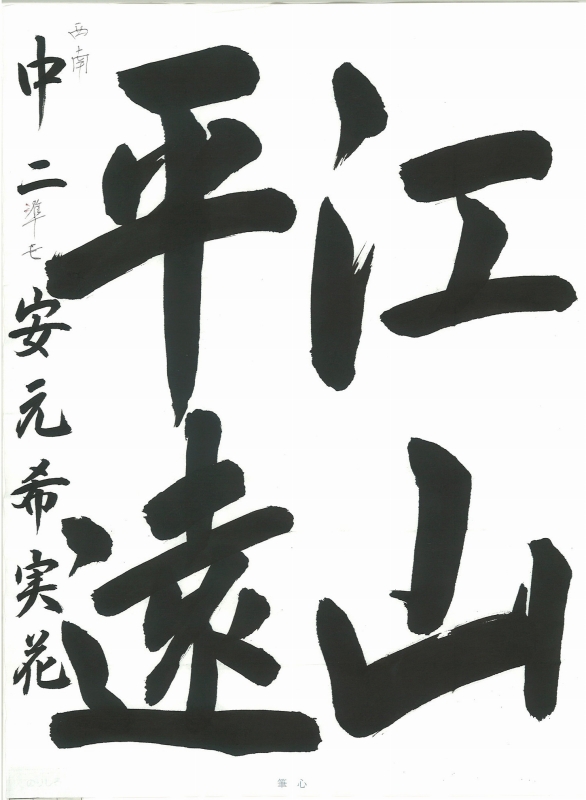 江山
平遠
西南
中二準七安元希実花
筆心